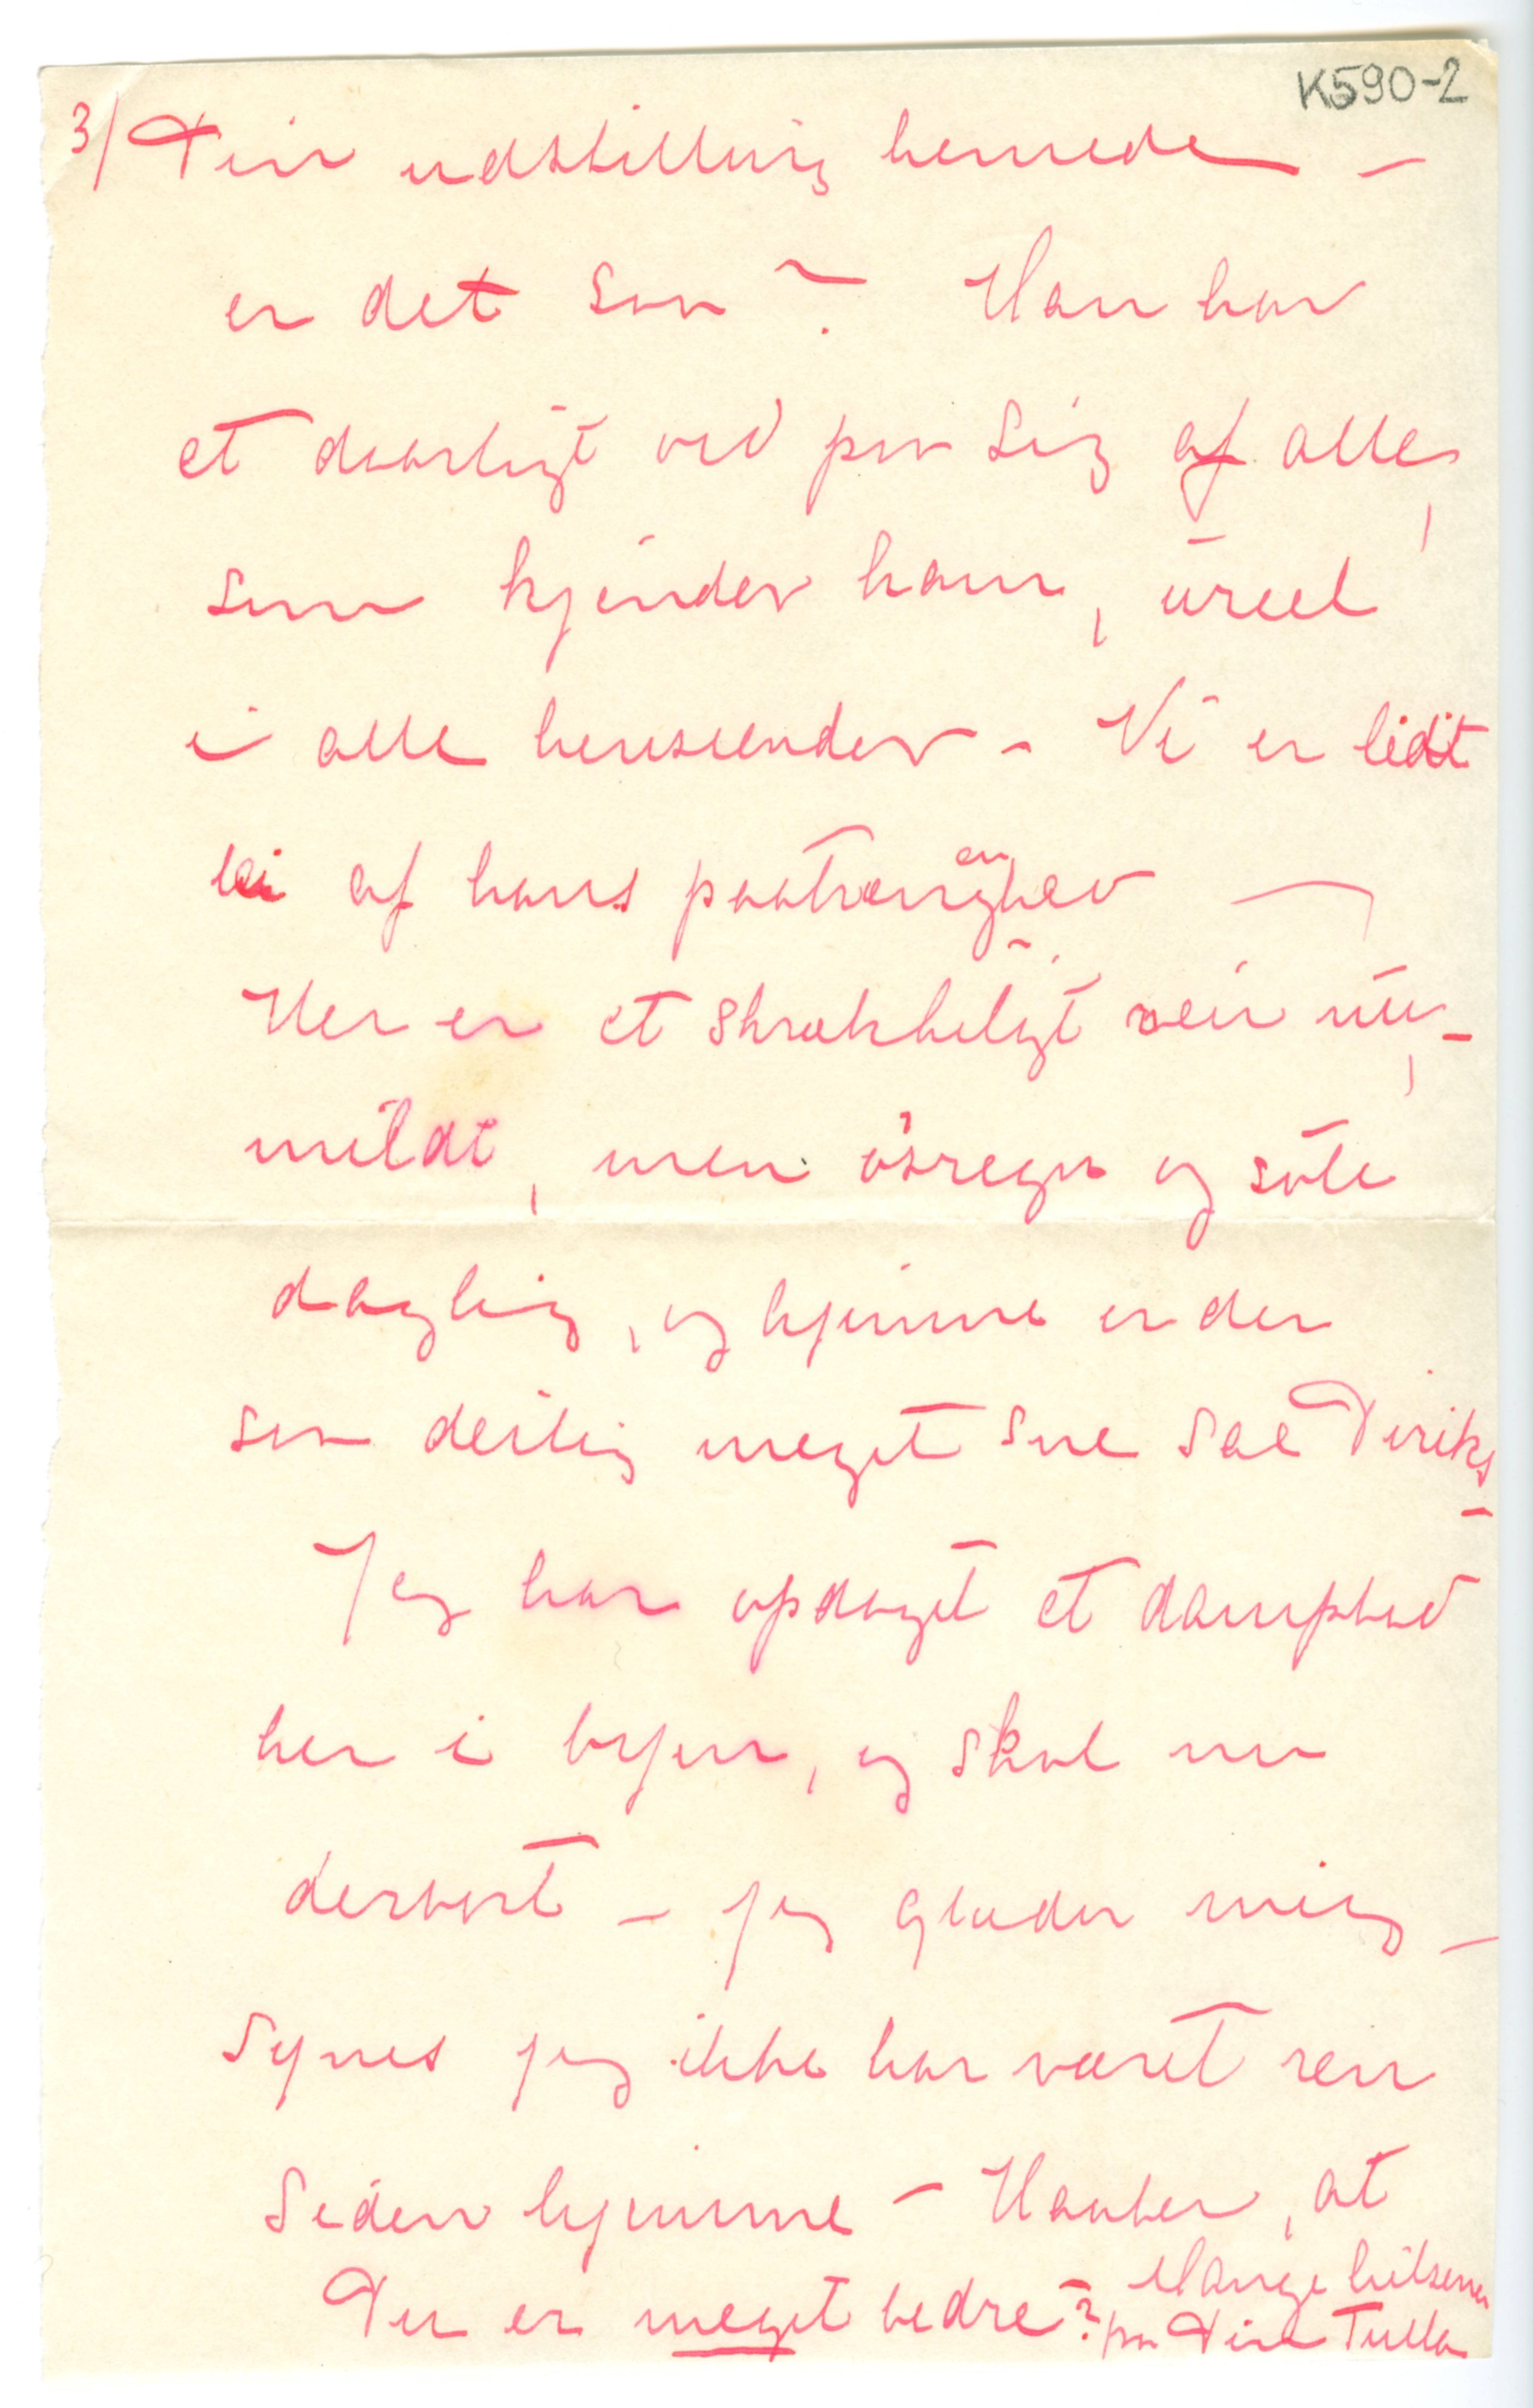 K590-2
3/ Din udstilling hernede –
er det saa? Han har
et daarligt ord paa sig af alle,
som kjender ham, ureel
i alle henseender – Vi er lidt
lei af hans paatrængenhed –
Her er et skrækkeligt veir nu, –
mildt, men ösregn og söle
daglig, og hjemme er der
saa deilig meget sne sae Diriks –
Jeg har opdaget et dampbad
her i byen, og skal nu
derbort – jeg glæder mig –
Synes jeg ikke har været ren
siden hjemme – Haaber, at
Du er meget bedre? Mange hilsener
fra Din Tulla